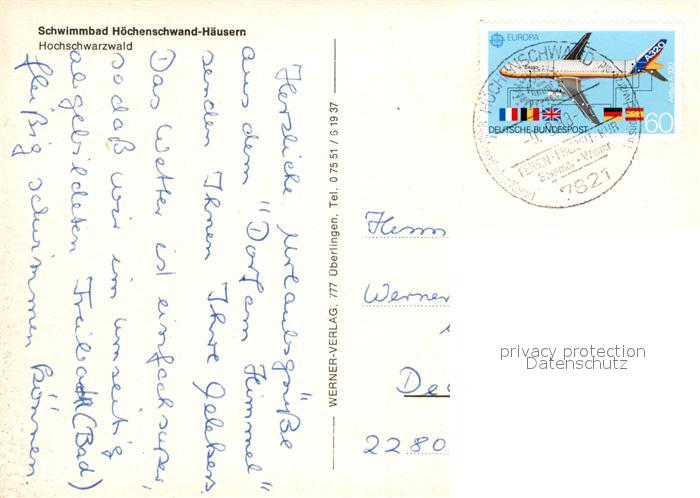 Schwimmbad Höchenschwand-Häusern
Hochschwarzwald
Herzliche Urlaubsgrüße
aus dem "Dorf am Himmel"
senden Ihnen Ihre
Das Wetter ist einfach super,
sodaß wir im umseitig
abgebildeten Freibad (Bad)
fleißig schwimmen können.
WERNER-VERLAG, 777 Überlingen, Tel. 0 75 51 / 6 19 37
EUROPA
A320
Airbus 320
DEUTSCHE BUNDESPOST
60
HÖCHENSCHWAND
FERIEN-FREIZEIT-KUR
Sommer + Winter
7821
Herrn
Werner
De
2280
privacy protection
Datenschutz